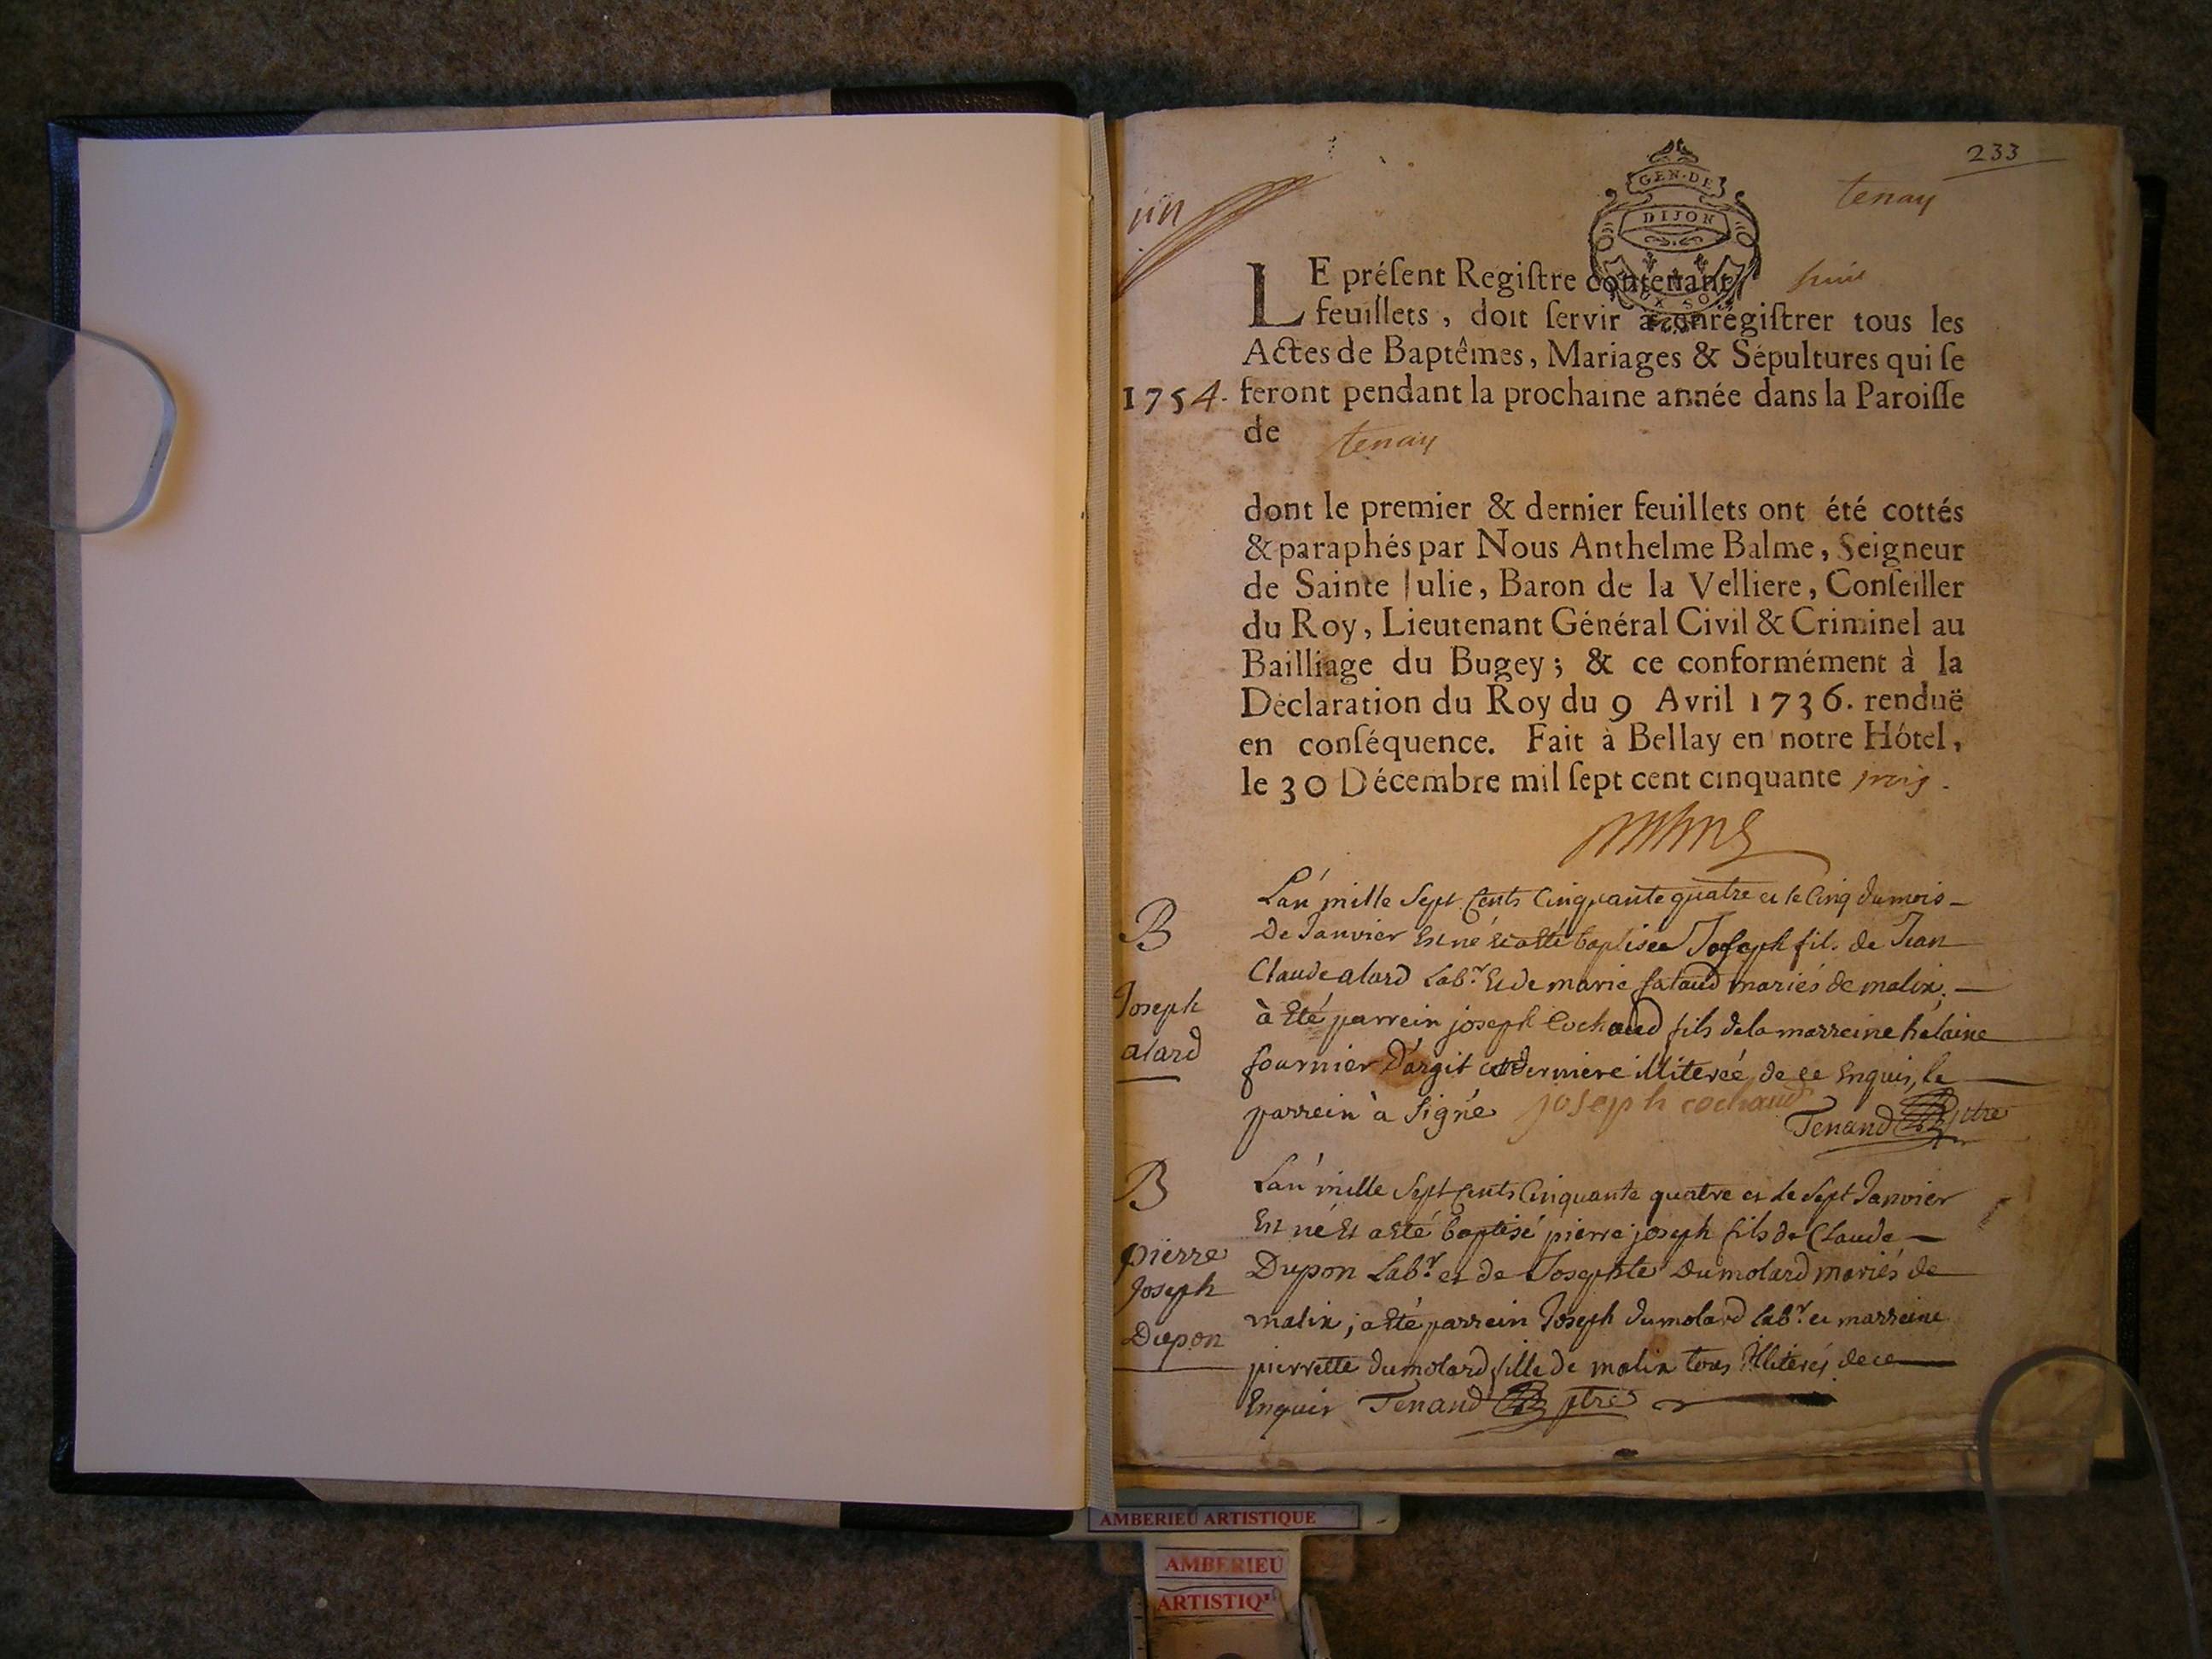 233
tenay
GEN·DE
DIJON
LE préſent Regiſtre contenant huit
feuillets, doit ſervir à enrégiſtrer tous les
Actes de Baptêmes, Mariages & Sépultures qui ſe
1754. feront pendant la prochaine année dans la Paroiſſe
de tenay
dont le premier & dernier feuillets ont été cottés
& paraphés par Nous Anthelme Balme, Seigneur
de Sainte Julie, Baron de la Velliere, Conſeiller
du Roy, Lieutenant Général Civil & Criminel au
Bailliage du Bugey; & ce conformément à la
Déclaration du Roy du 9 Avril 1736. renduë
en conſéquence. Fait à Bellay en notre Hôtel,
le 30 Décembre mil ſept cent cinquante trois.
B
Joseph
alard
Lan mille Sept Cents Cinquante quatre et le Cinq du mois
De Janvier Est né et a Esté baptisée Joseph fils de Jean
Claude alard Labr. Et de marie mariés de malix.
à Eté parrein joseph Cochaud fils de la marreine helaine
fournier D'argit cette derniere illiterée de ce Enquis, le
parrein à Signé joseph cochaud
Tenand ptre
B
pierre
Joseph
Dupon
Lan mille Sept Cents Cinquante quatre et le Sept Janvier
Est né Et a Eté baptisé pierre joseph fils de Claude
Dupon Labr. et de Josephte Dumolard mariés de
malix; a Eté parrein Joseph Dumolard labr. et marreine
pierrette dumolard fille de malix tous Illiterés de ce
Enquis Tenand ptre
AMBERIEU ARTISTIQUE
AMBERIEU
ARTISTIQ